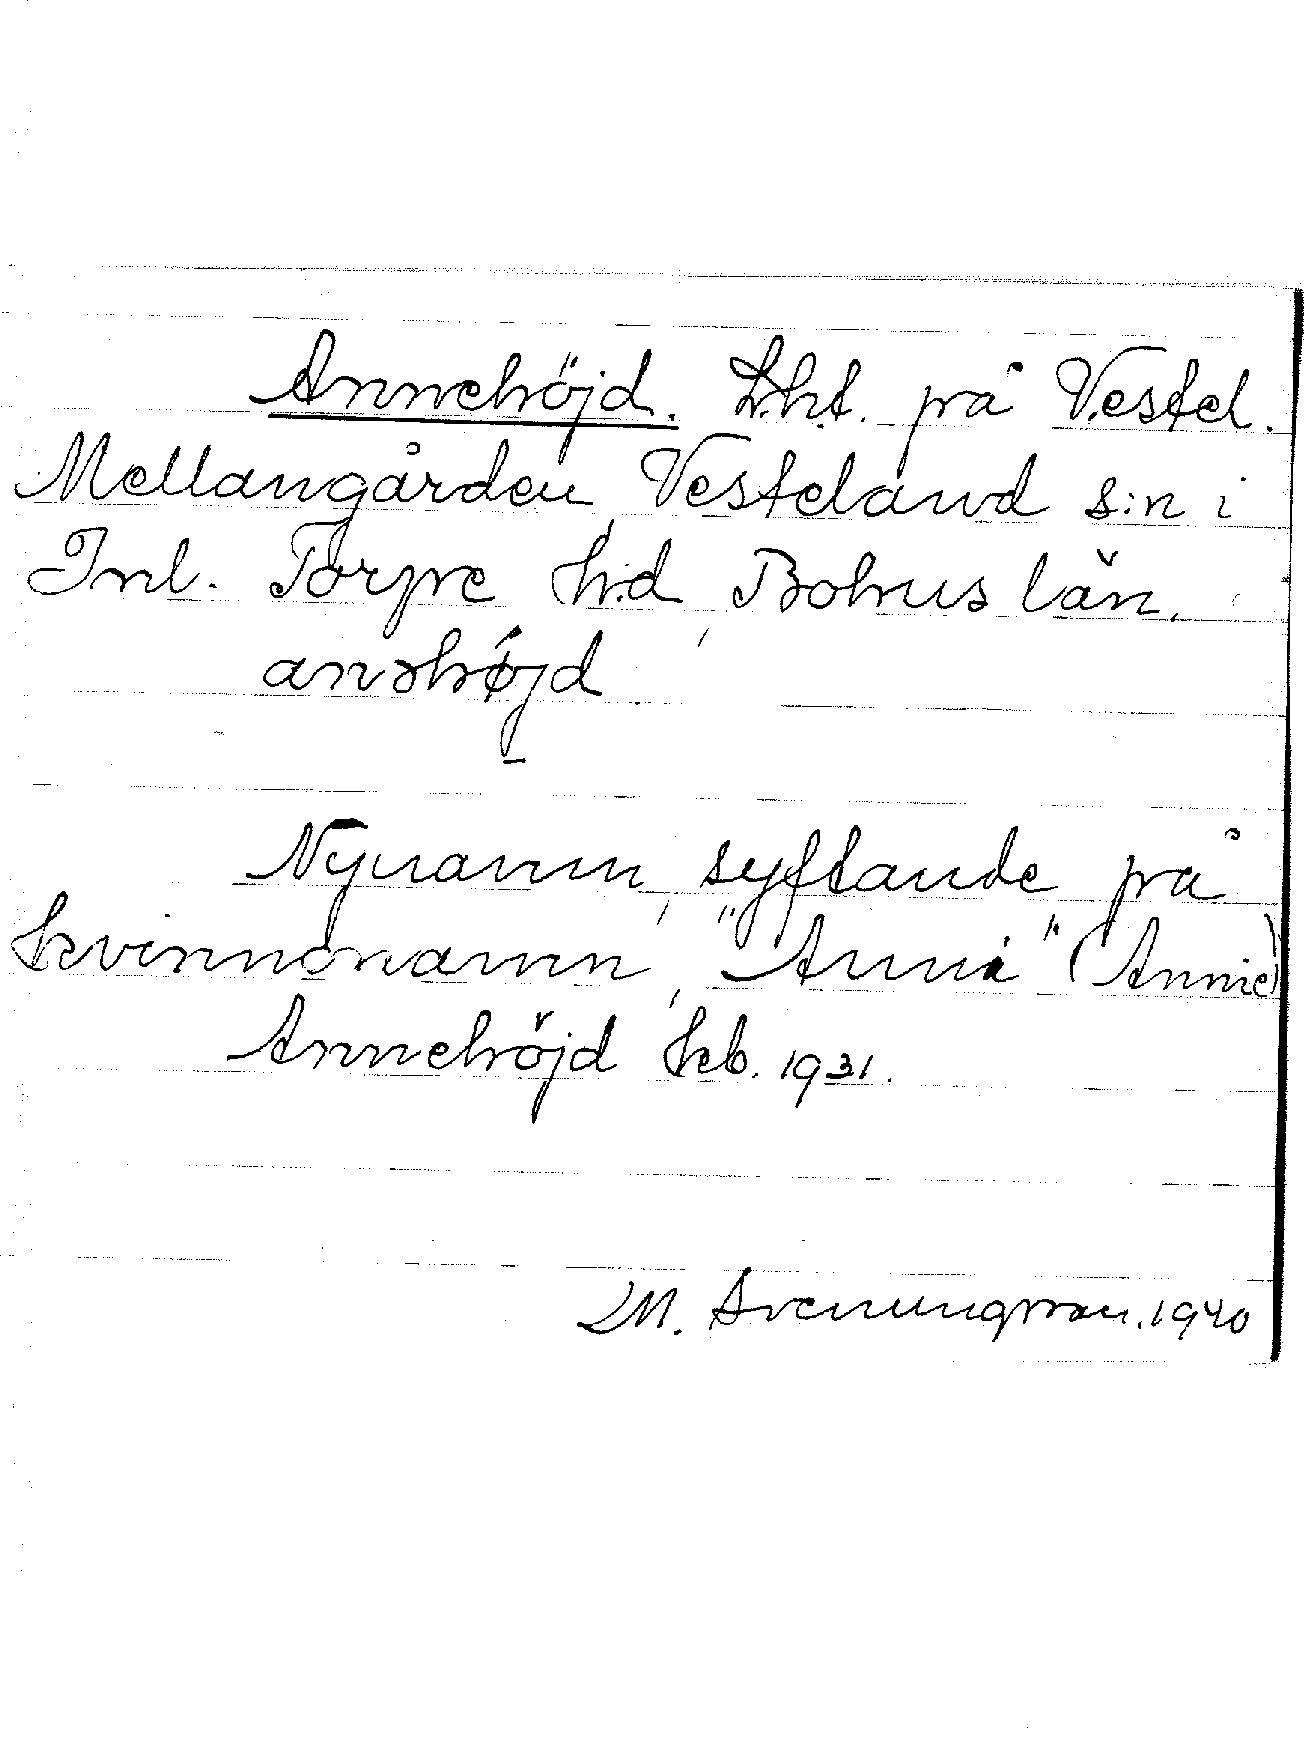 Annehöjd. Lht. på Vestel.
Mellangården, Vesteland s:n i
Inl. Torpe h:d, Bohus län.
anəhø̀jd
Nynamn, syftande på
kvinnonamn, "Anni" (Annie)
Annehöjd kb. 1931.
M. Svenungsson. 1940